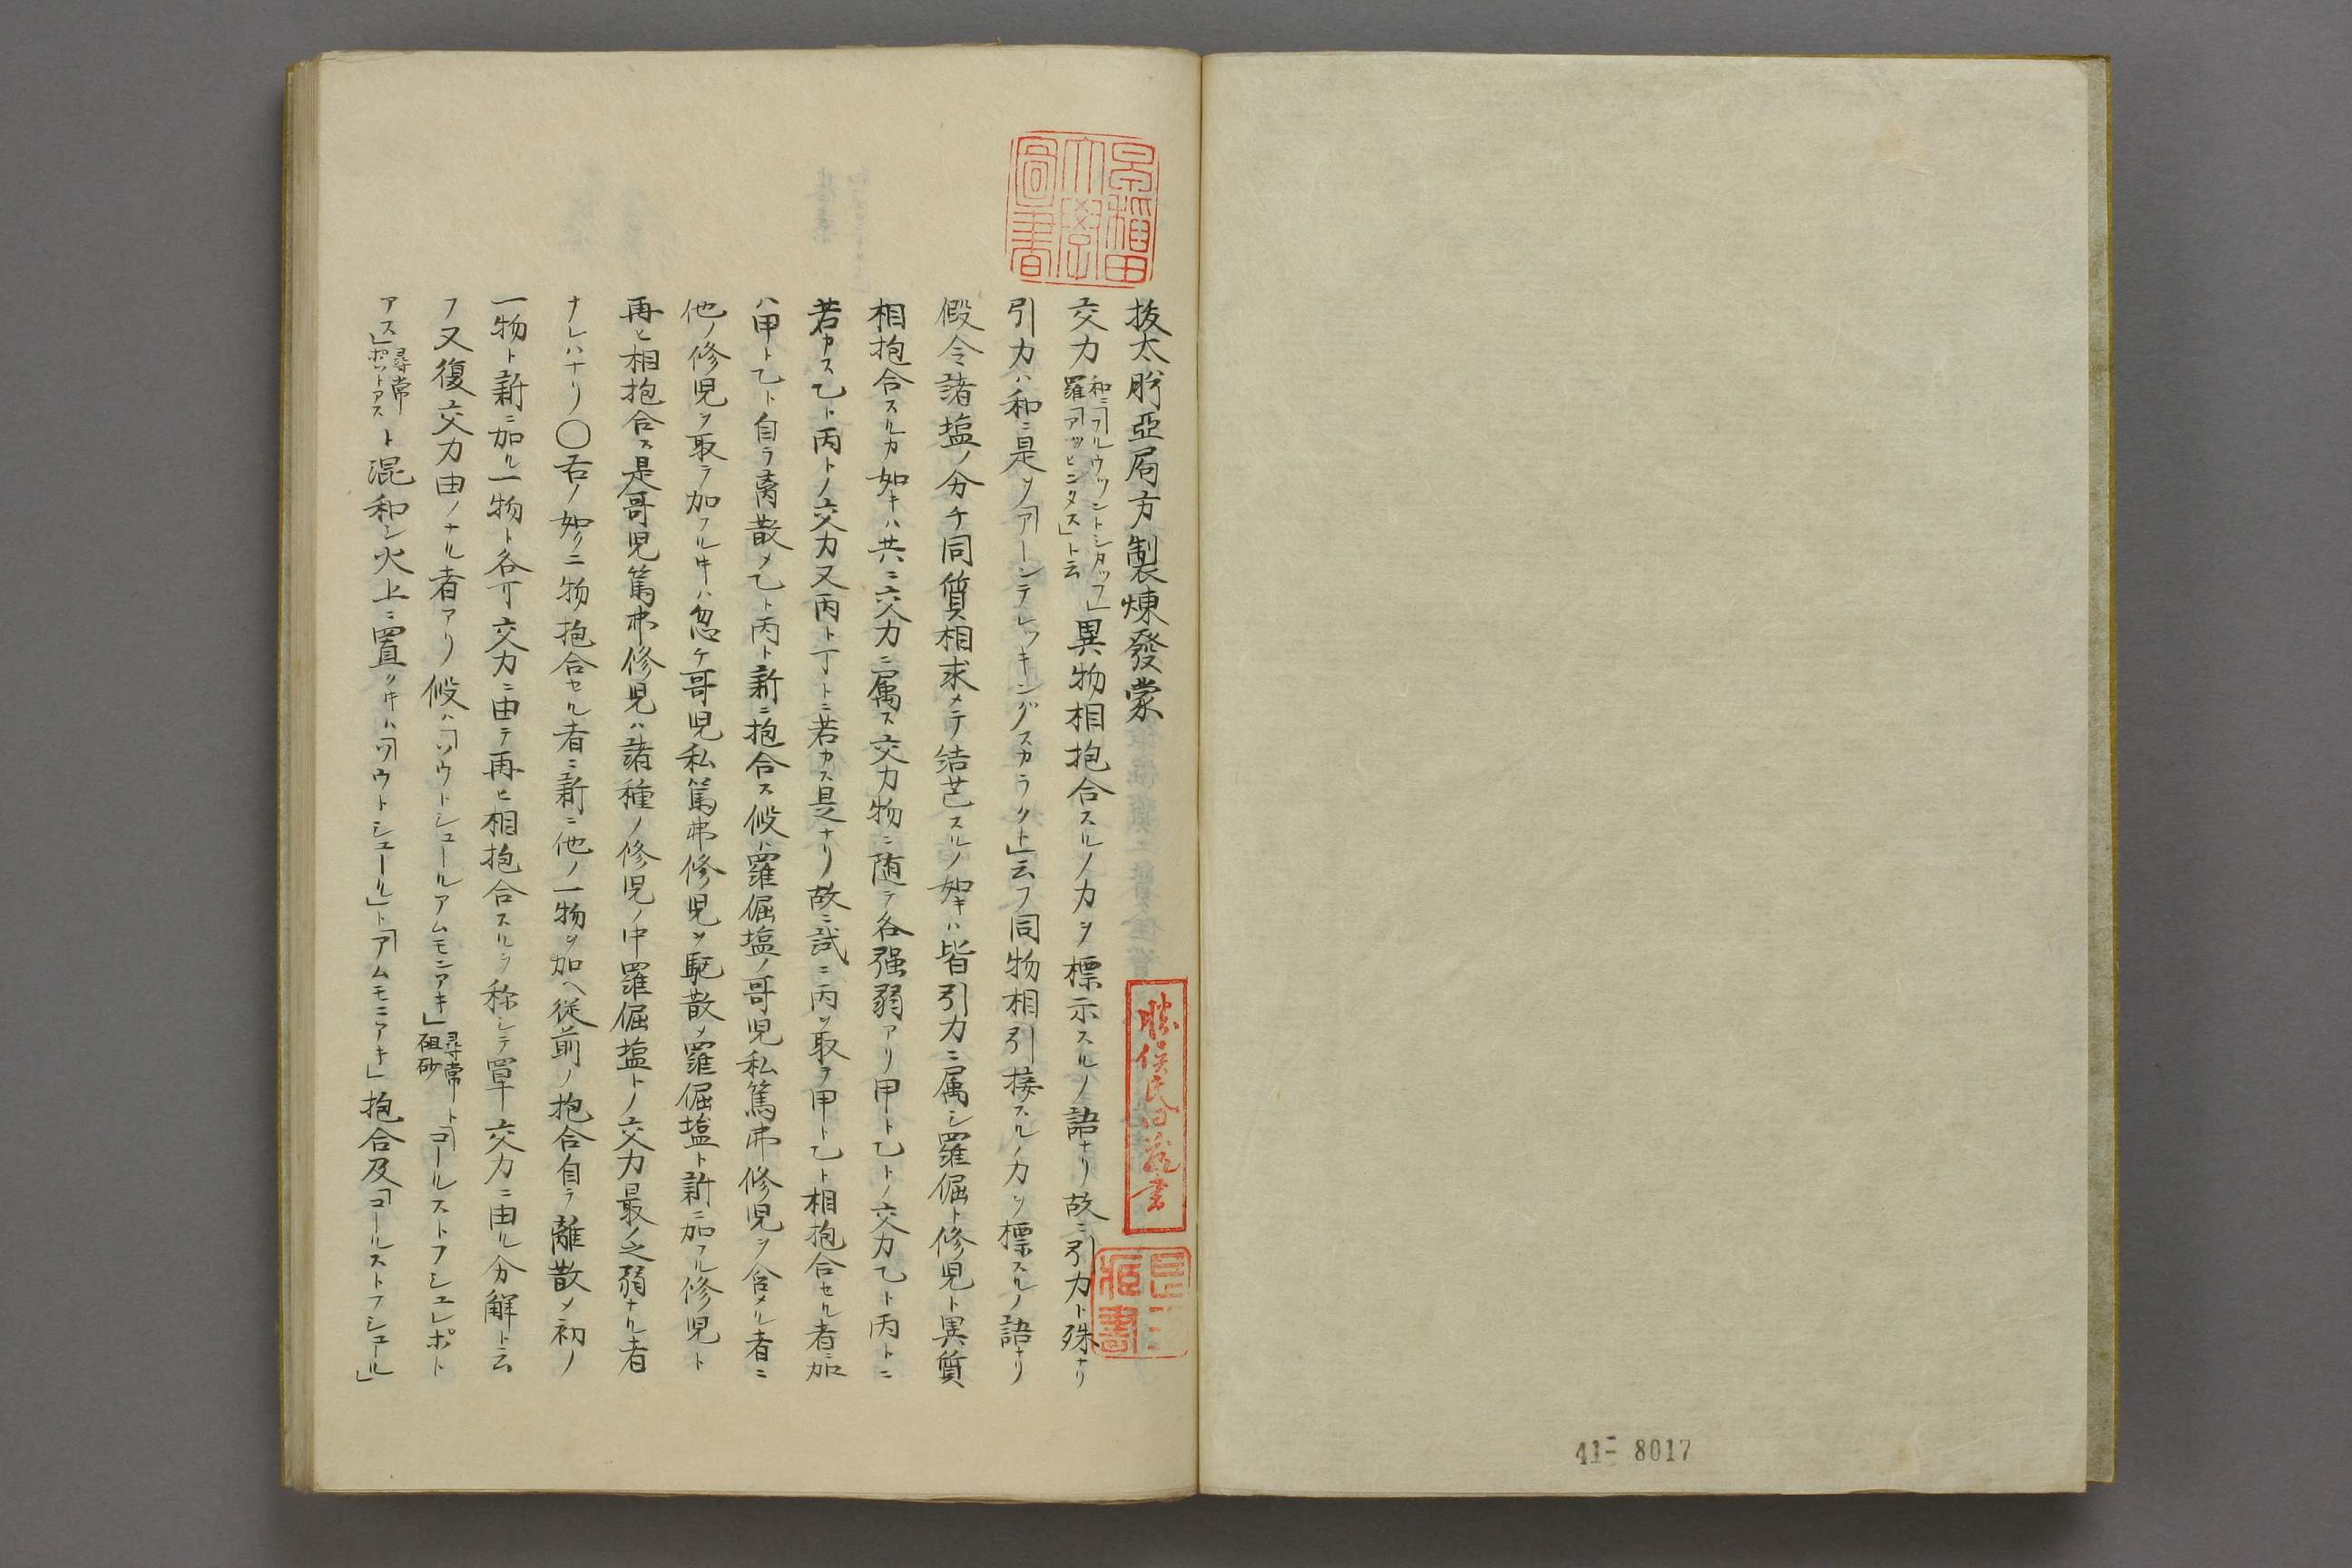 拔太肸亞局方製煉發蒙
交力和ニ「フルウツントシカップ」羅「アッヒニタス」ト云異物相抱合スルノ力ヲ標示スルノ語ナリ故ニ引力ト殊ナリ
引力ハ和ニ是ヲ「アーンテレッキングスカラクト」云フ同物相引接スルノ力ヲ標スルノ語ナリ
假令諸塩ノ分子同質相求メテ結芒スルノ如キハ皆引力ニ属シ羅倔ト修児ト異質
相抱合スルカ如キハ共ニ交力ニ属ス交力物ニ随テ各强弱アリ甲ト乙トノ交力乙ト丙トニ
若カス乙ト丙トノ交力又丙ト丁トニ若カス是ナリ故ニ試ニ丙ヲ取テ甲ト乙ト相抱合セル者ニ加
ハ甲ト乙ト自ラ离散メ乙ト丙ト新ニ抱合ス假ハ羅倔塩ノ哥児私篤弗修児ヲ含メル者ニ
他ノ修児ヲ取テ加フル㕝ハ忽ケ哥児私篤弗修児ヲ駈散メ羅倔塩ト新ニ加フル修児ト
再ヒ相抱合ス是哥児篤弗修児ハ諸種ノ修児ノ中羅倔塩トノ交力最ノ之弱ナル者
ナレハナリ〇右ノ如ク二物抱合セル者ニ新ニ他ノ一物ヲ加ヘ従前ノ抱合自ラ離散メ初ノ
一物ト新ニ加ル一物ト各可交力ニ由テ再ヒ相抱合スルヲ称シテ單交力ニ由ル分解ト云
フ又復交力由ノナル者アリ假ハ「ソウトシュールアムモンアキ」尋常硇砂ト「コールストフシュレポト
アス」尋常ポットアスト混和シ火上ニ置ク㕝ハ「ソウトシュール」ト「アムモニアキ」抱合及「コールストフシュール」
早稲田大學圖書
41- 8017